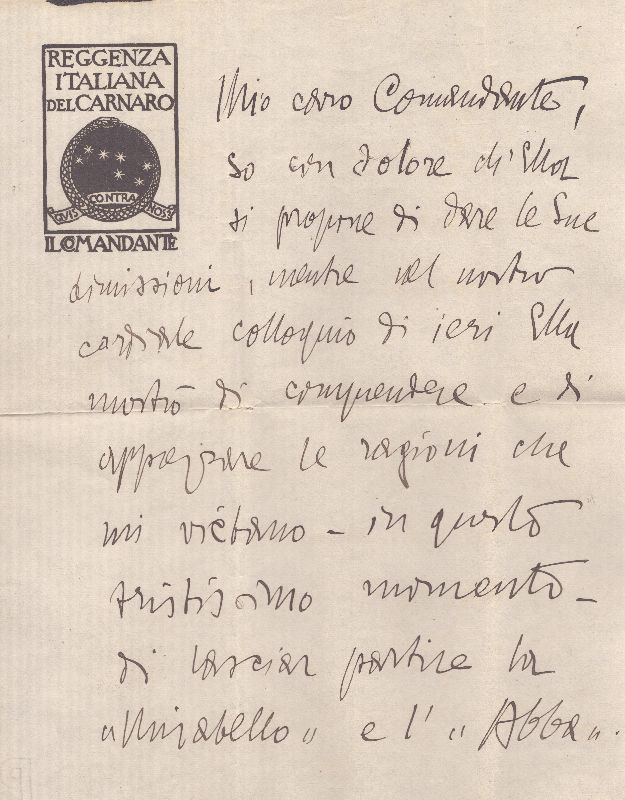 REGGENZA
ITALIANA
DEL CARNARO
QVIS CONTRA NOS?
IL COMANDANTE
Mio caro Comandante,
so con dolore ch'Ella
si propone di dare le Sue
dimissioni, mentre nel nostro
cordiale colloquio di ieri Ella
mostrò di comprendere e di
apprezzare le ragioni che
mi viètano – in questo
tristissimo momento –
di lasciar partire la
"Mirabello" e l' "Abba".